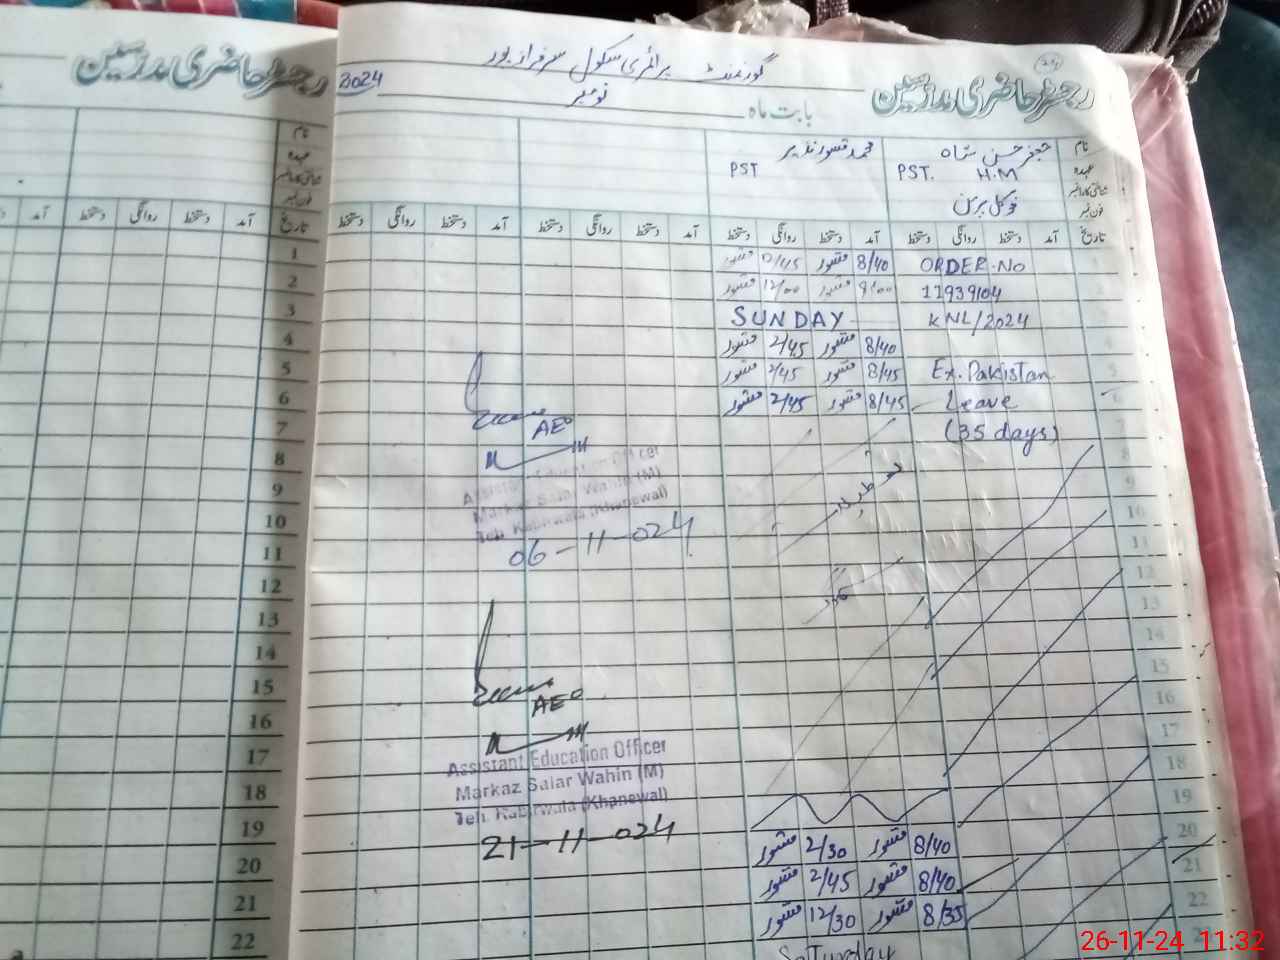 رجسٹر حاضری مدرسین
گورنمنٹ پرائمری سکول سرفراز پور
بابت ماہ نومبر 2024
نام
جعفر حسن شاہ
محمد قسور نذیر
عہدہ
PST. H.M
PST
شناختی کارڈ نمبر
فون نمبر
فوکل پرسن
تاریخ آمد دستخط روانگی دستخط آمد دستخط روانگی دستخط آمد دستخط روانگی دستخط آمد دستخط روانگی دستخط
1 ORDER.NO 8/40 قسور 12/45 قسور
2 11939104 9:00 قسور 12/00 قسور
3 KNL/2024 SUNDAY
4 8/40 قسور 2/45 قسور
5 Ex.Pakistan 8/45 قسور 2/45 قسور
6 Leave 8/45 قسور 2/45 قسور
7 (35 days)
8
9
10
11
12
13
14
15
16
17
18
19
20 8/40 قسور 2/30 قسور
21 8/40 قسور 2/45 قسور
22 8/35 قسور 12/30 قسور
Saturday
AEO
Assistant Education Officer
Markaz Salar Wahin (M)
Teh. Kabirwala (Khanewal)
06-11-024
AEO
Assistant Education Officer
Markaz Salar Wahin (M)
Teh. Kabirwala (Khanewal)
21-11-024
رجسٹر حاضری مدرسین
نام
عہدہ
شناختی کارڈ نمبر
فون نمبر
تاریخ آمد دستخط روانگی دستخط آمد
1
2
3
4
5
6
7
8
9
10
11
12
13
14
15
16
17
18
19
20
21
22
26-11-24 11:32